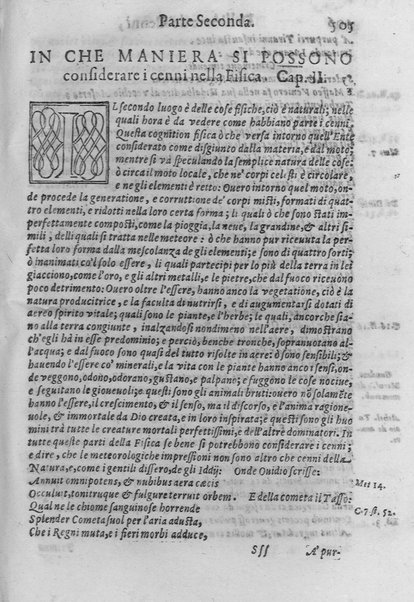 Parte Seconda. 505
IN CHE MANIERA SI POSSONO
considerare i cenni nella Fisica. Cap. II.
IL secondo luogo è delle cose fisiche, ciò è naturali; nelle
quali hora è da vedere come habbiano parte i cenni.
Questa cognition fisica ò che versa intorno quell'Ente
considerato come disgiunto dalla materia, e dal moto,
mentre si và speculando la semplice natura delle cose:
ò circa il moto locale, che ne' corpi celesti è circolare,
e ne gli elementi è retto: Ouero intorno quel moto, on-
de procede la generatione, e corruttione de' corpi misti, formati di quat-
tro elementi, e ridotti nella loro certa forma; li quali ò che sono stati im-
perfettamente composti, come la pioggia, la neue, la grandine, & altri si-
mili, delli quali si tratta nelle meteore: ò che hanno pur riceuuta la per-
fetta loro forma dalla mescolanza de gli elementi; e sono di quattro sorti;
ò inanimati co'l solo essere, li quali partecipi per lo più della terra in lei
giacciono, come l'oro, e gli altri metalli, e le pietre, che dal fuoco riceuono
poco detrimento: Ouero oltre l'essere, hanno anco la vegetatione, ciò è la
natura producitrice, e la faculta di nutrirsi, e di augumentarsi dotati di
aereo spirito vitale; quali sono le piante, e l'herbe; le quali, ancorche sia-
no alla terra congiunte, inalzandosi nondimeno nell'aere, dimostrano
ch'egli hà in esse predominio; e perciò, benche tronche, sopranuotano al-
l'acqua; e dal fuoco sono quasi del tutto risolte in aere: ò sono sensibili; &
hauendo l'essere co' minerali, e la vita con le piante hanno anco i sensi, on-
de veggono, odono, odorano, gustano, e palpano; e fuggono le cose nociue,
e seguitano le gioueuoli; e questi sono gli animali bruti: ouero nō solamēte
hanno l'essere, il crescimento, & il senso, ma il discorso, e l'anima ragione-
uole, & immortale da Dio creata, e in loro inspirata; e questi sono gli huo
mini trà tutte le creature mortali perfettissimi, e dell'altre dominatori. In
tutte queste parti della Fisica se bene si potrebbono considerare i cenni;
e dire, che le meteorologiche impressioni non sono altro che cenni della
Natura, e, come i gentili dissero, de gli Iddij: Onde Ouidio scrisse:
Annuit omnipotens, & nubibus aera cæcis Met 14.
Occuluit, tonitruque & fulgure terruit orbem. E della cometa il Tasso:
Qual ne le chiome sanguinose horrende C. 7 st. 52.
Splender Cometa suol per l'aria adusta,
Che i Regni muta, e i fieri morbi adduce,
Sss A' pur-